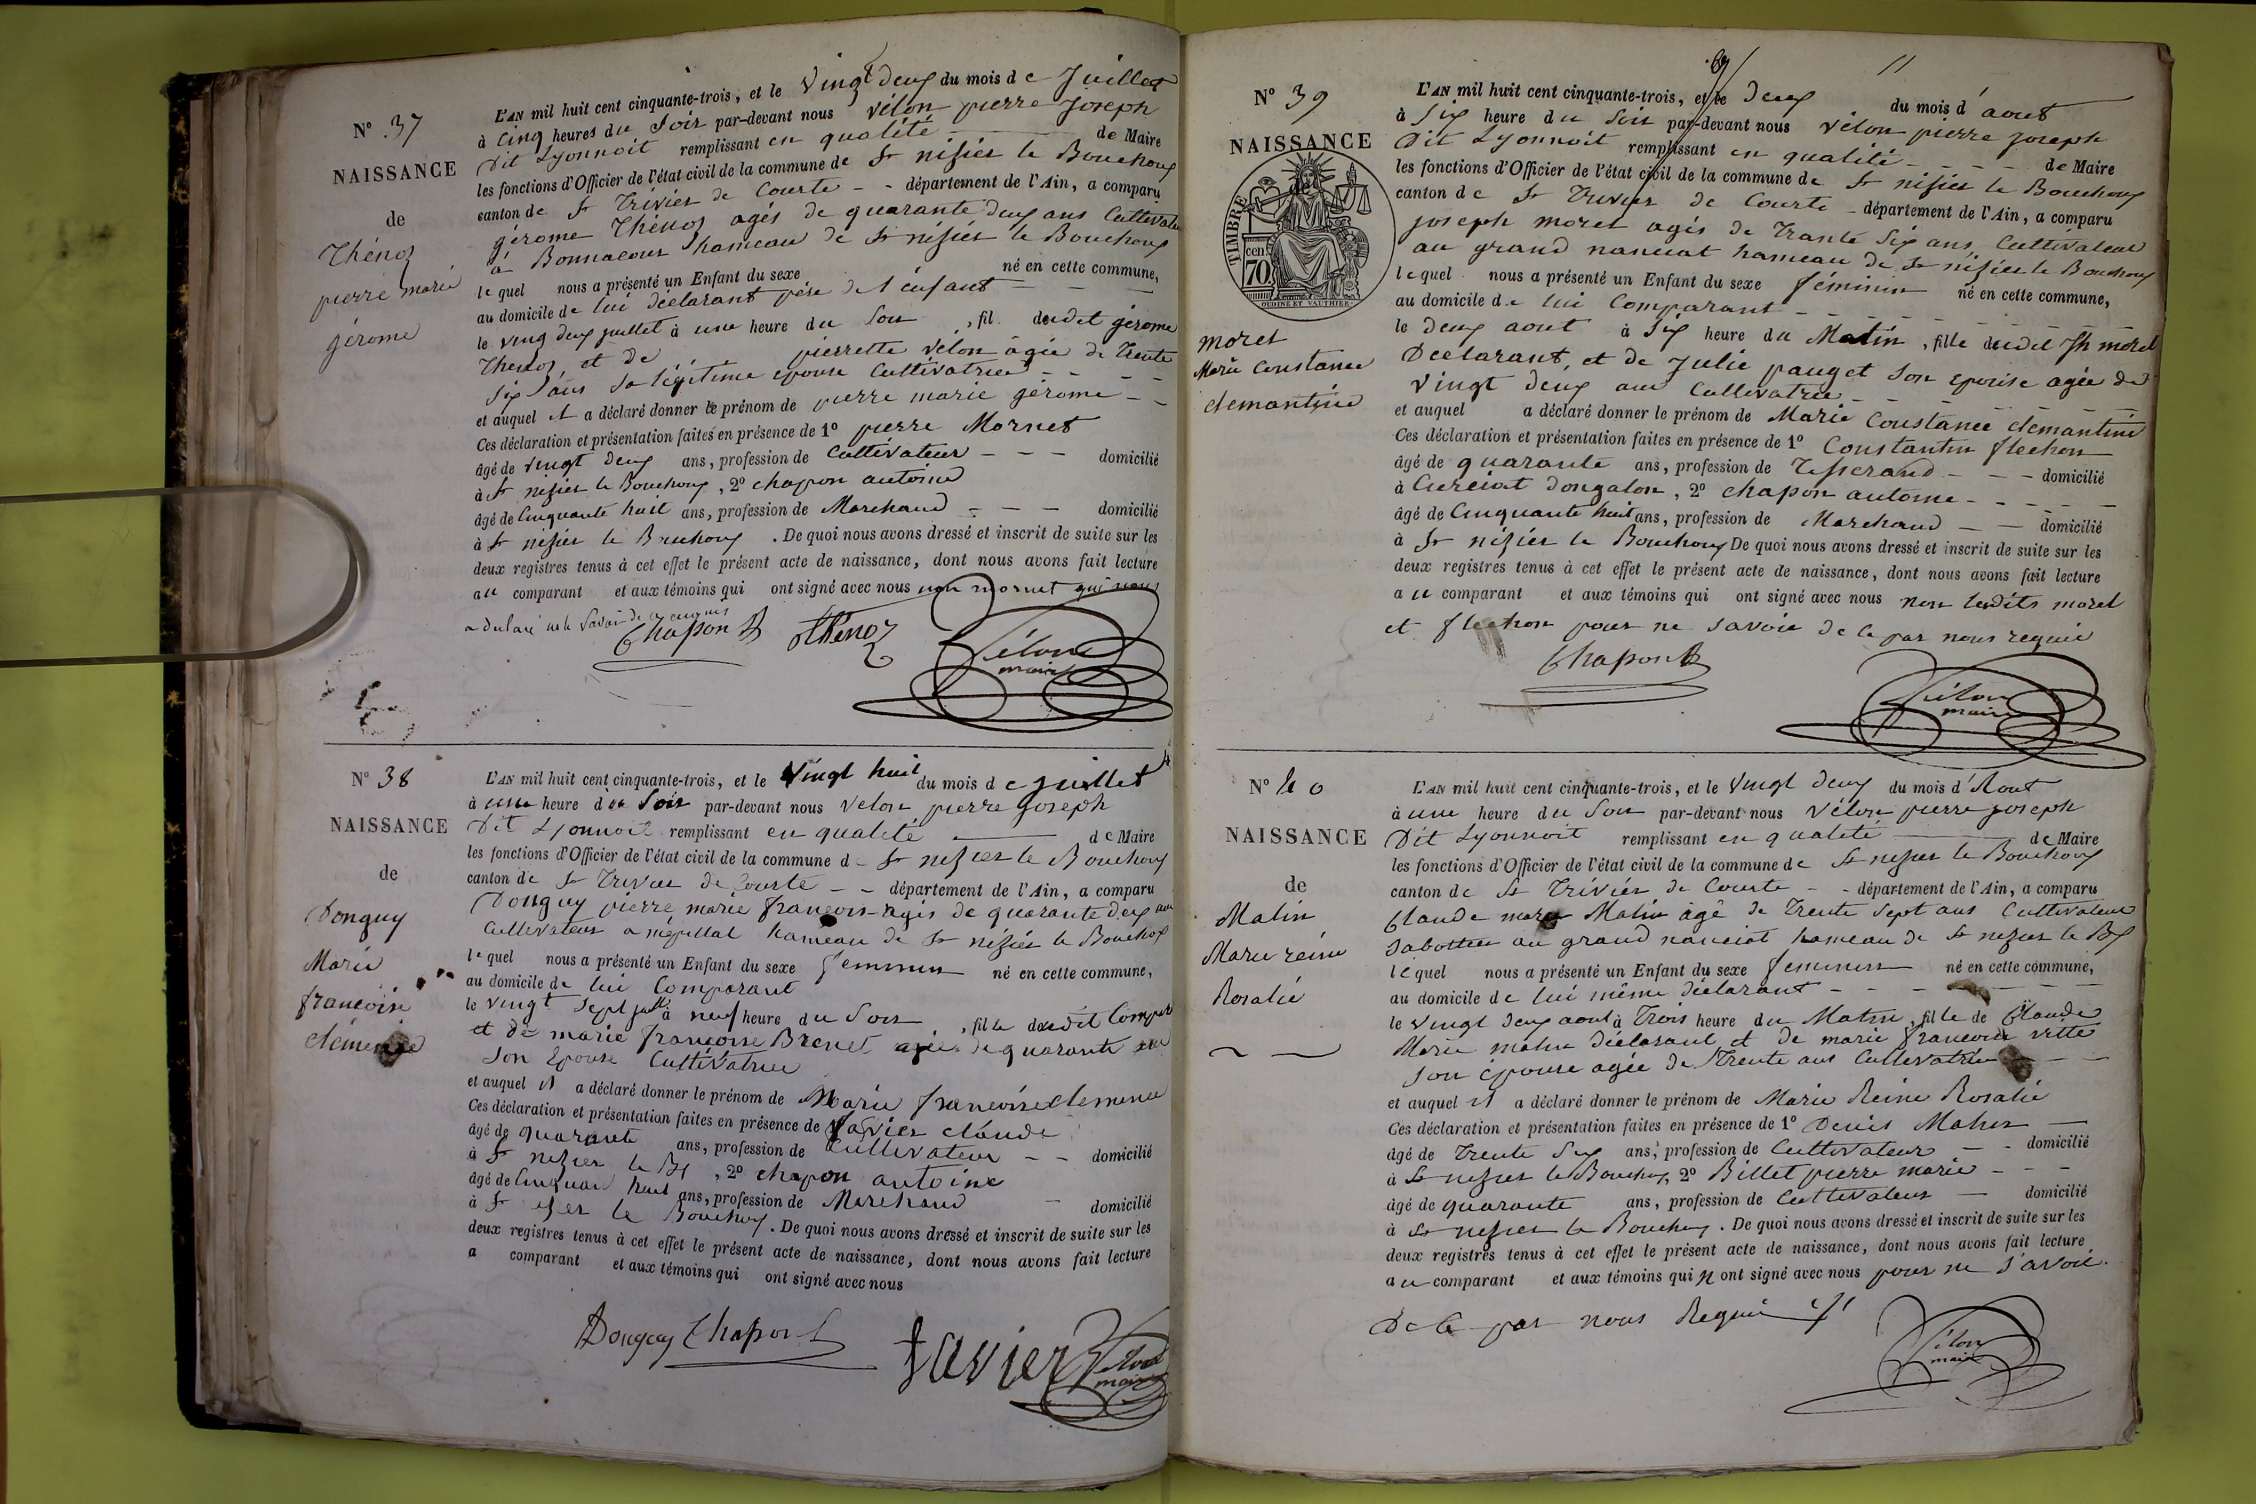 N° 37
NAISSANCE
de
Thénoz
pierre marie
gérome
L'AN mil huit cent cinquante-trois, et le Vingt deux du mois de Juillet
à Cinq heures du Soir par-devant nous Vélon pierre Joseph
Dit Lyonnoit remplissant en qualité de Maire
les fonctions d'Officier de l'état civil de la commune de St nisier le Bouchoux
canton de St Trivier de Courte - - département de l'Ain, a comparu
gérome Thénoz agés de quarante deux ans Cultivateur
à Bonnacour hameau de St nisier le Bouchoux
lequel nous a présenté un Enfant du sexe né en cette commune,
au domicile de lui déclarant père de l'enfant
le ving deux juillet à une heure du Soir , fil dudit gérome
Thenoz, et de pierrette vélon agée de Trente
Six ans Sa légitime epouse Cultivatrice - - - -
et auquel il a déclaré donner le prénom de pierre marie gérome - -
Ces déclaration et présentation faites en présence de 1° pierre Mornet
âgé de vingt deux ans, profession de Cultivateur - - - domicilié
à St nisier le Bouchoux, 2° chapon antoine
âgé de Cinquante huit ans, profession de Marchand - - - domicilié
à St nisier le Bouchoux . De quoi nous avons dressé et inscrit de suite sur les
deux registres tenus à cet effet le présent acte de naissance, dont nous avons fait lecture
au comparant et aux témoins qui ont signé avec nous non mornet qui nous
a déclaré ne le Savoir de ce requis
Chapon A Thenoz Vélon
maire
N° 38
NAISSANCE
de
Donguy
Marie
francoise
clémence
L'AN mil huit cent cinquante-trois, et le Vingt huit du mois de juillet
à une heure du Soir par-devant nous Vélon pierre joseph
Dit Lyonnoit remplissant en qualité de Maire
les fonctions d'Officier de l'état civil de la commune de St nisier le Bouchoux
canton de St Trivier de Courte - - département de l'Ain, a comparu
Donguy pierre marie françois agés de quarante deux ans
Cultivateur a mépillat hameau de St nisier le Bouchoux
lequel nous a présenté un Enfant du sexe féminin né en cette commune,
au domicile de lui Comparant
le vingt Sept jllt à neuf heure du Soir , fille dudit Compart
et de marie francoise Brenet agée de quarante ans
Son Epouse Cultivatrice
et auquel il a déclaré donner le prénom de Marie francoise clemence
Ces déclaration et présentation faites en présence de favier claude
âgé de quarante ans, profession de Cultivateur - - domicilié
à St nizier le Bx , 2° chapon antoine
âgé de Cinquan huit ans, profession de Marchand - domicilié
à St isier le Bouchoux . De quoi nous avons dressé et inscrit de suite sur les
deux registres tenus à cet effet le présent acte de naissance, dont nous avons fait lecture
a comparant et aux témoins qui ont signé avec nous
Donguy Chapon A favier Vélon
maire
11
N° 39
NAISSANCE
TIMBRE
cen. 70
OUDINE ET VAUTHIER
moret
Marie Constance
clemantine
L'AN mil huit cent cinquante-trois, et le deux du mois d'aout
à Six heure du Soir par-devant nous Vélon pierre joseph
Dit Lyonnoit remplissant en qualité - - - - de Maire
les fonctions d'Officier de l'état civil de la commune de St nisier le Bouchoux
canton de St Trivier de Courte - département de l'Ain, a comparu
joseph moret agés de Trante Six ans, Cultivateur
au grand nanciat hameau de St nisier le Bouchoux
lequel nous a présenté un Enfant du sexe féminin né en cette commune,
au domicile de lui Comparant
le deux aout à Six heure du Matin , fille dudit Jh moret
Declarant, et de Julie pauget Son epouse agée de
vingt deux ans Cultivatrice
et auquel a déclaré donner le prénom de Marie Constance clemantine
Ces déclaration et présentation faites en présence de 1° Constantin flechon
âgé de quarante ans, profession de Tisserand - - - domicilié
à Curciat dongalon, 2° chapon antoine - - - - -
âgé de Cinquante huit ans, profession de Marchand - - domicilié
à St nisier le Bouchoux De quoi nous avons dressé et inscrit de suite sur les
deux registres tenus à cet effet le présent acte de naissance, dont nous avons fait lecture
au comparant et aux témoins qui ont signé avec nous non lesdits moret
et flechon pour ne Savoir de ce par nous requie
Chapon A
Vélon
maire
N° 40
NAISSANCE
de
Matin
Marie reine
Rosalie
L'AN mil huit cent cinquante-trois, et le Vingt deux du mois d'Aout
à une heure du Soir par-devant nous Vélon pierre joseph
Dit Lyonnoit remplissant en qualité de Maire
les fonctions d'Officier de l'état civil de la commune de St nisier le Bouchoux
canton de St Trivier de Courte - - département de l'Ain, a comparu
Claude marie Matin âgé de Trente Sept ans Cultivateur
Sabottier au grand nanciat hameau de St nizier le Bx
lequel nous a présenté un Enfant du sexe feminin né en cette commune,
au domicile de lui même déclarant
le vingt deux aout à Trois heure du Matin , fille de Claude
Marie matin déclarant et de marie francoise vitte
Son épouse agée de Trente ans Cultivatrice
et auquel il a déclaré donner le prénom de Marie Reine Rosalie
Ces déclaration et présentation faites en présence de 1° Denis Maher
âgé de Trente Six ans, profession de Cultivateur - - domicilié
à St nizier le Bouchoux, 2° Billet pierre marie - - -
âgé de quarante ans, profession de Cultivateur - domicilié
à St nizier le Bouchoux . De quoi nous avons dressé et inscrit de suite sur les
deux registres tenus à cet effet le présent acte de naissance, dont nous avons fait lecture
au comparant et aux témoins qui n ont signé avec nous pour ne Savoir
de ce par nous Requie
Vélon
maire